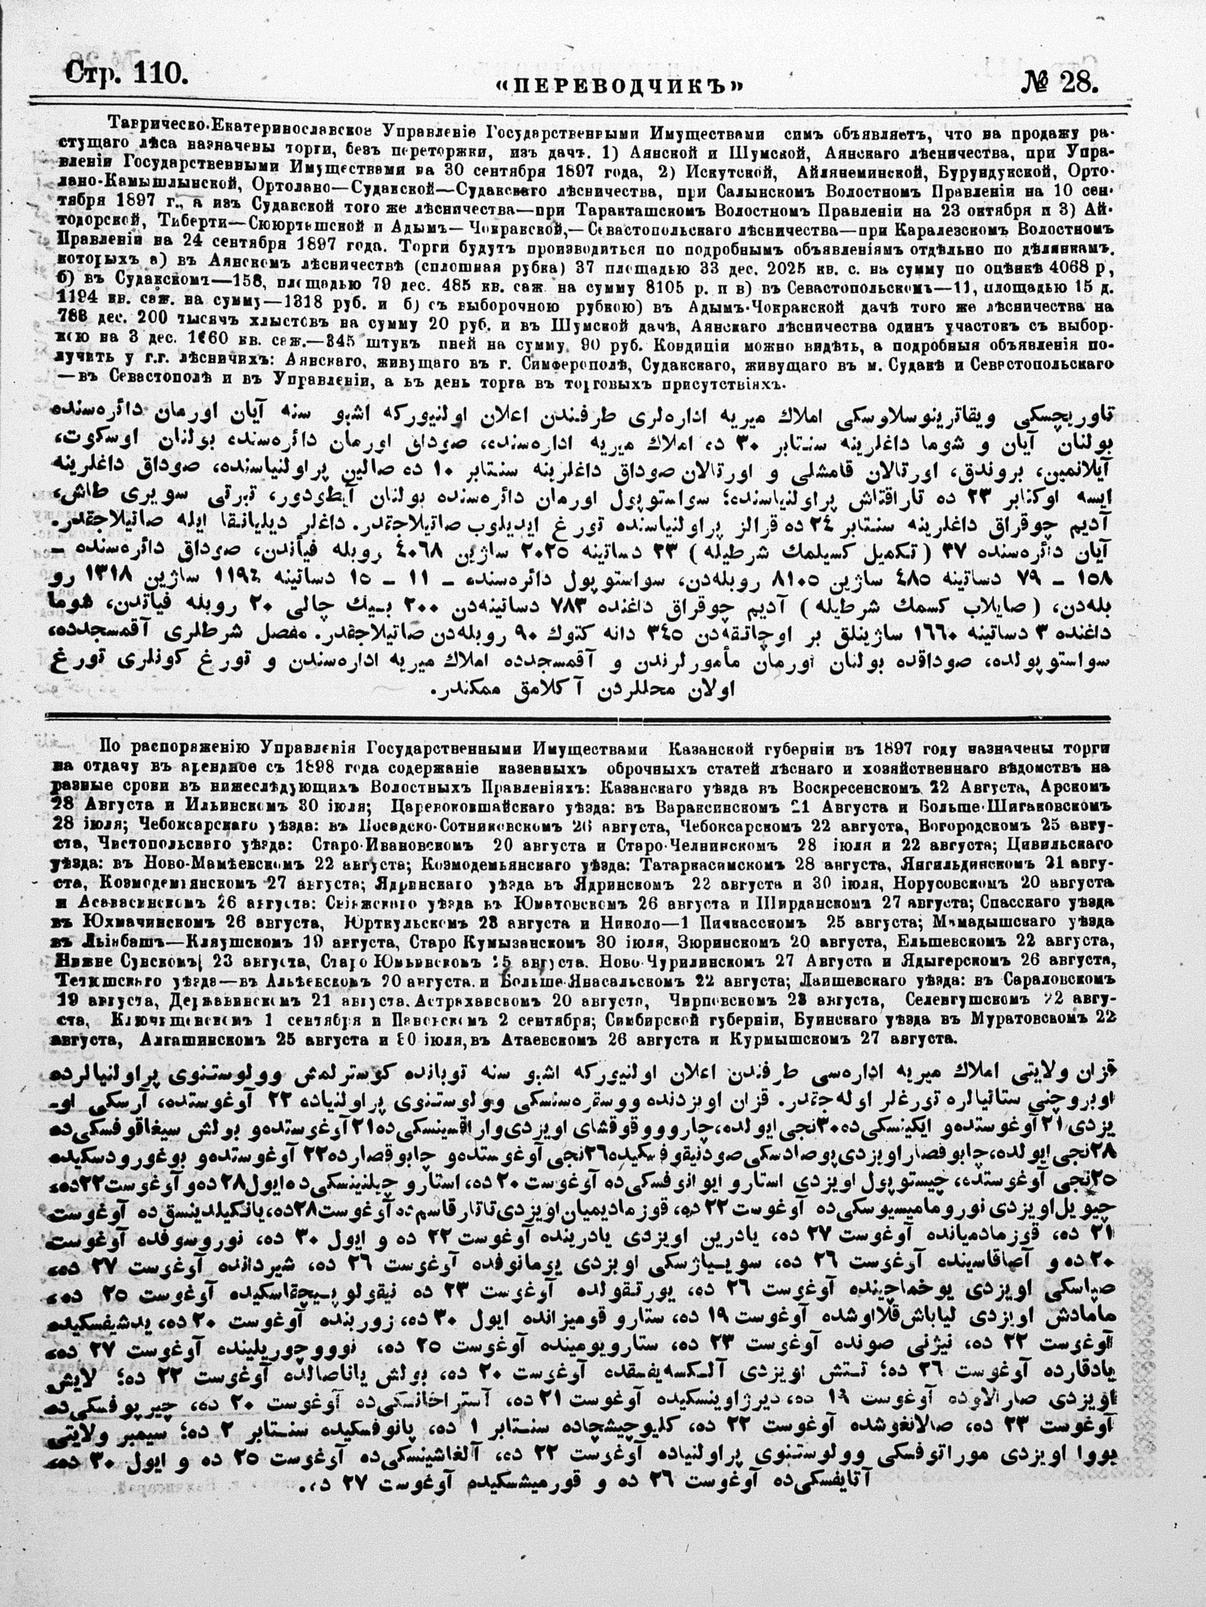 Стр. 110.
«ПЕРЕВОДЧИКЪ»
№ 28.
Таврическо-Екатеринославское Управленіе Государственными Имуществами симъ объявляетъ, что на продажу ра-
стущаго лѣса назначены торги, безъ переторжки, изъ дачъ. 1) Аянской и Шумской, Аянскаго лѣсничества, при Упра-
вленіи Государственными Имуществами на 30 сентября 1897 года, 2) Искутской, Айлянеминской, Бурундукской, Орто-
лано-Камышлынской, Ортолано—Судакской—Судакскаго лѣсничества, при Салынскомъ Волостномъ Правленіи на 10 сен-
тября 1897 г., а изъ Судакской того же лѣсничества—при Таракташскомъ Волостномъ Правленіи на 23 октября и 3) Ай-
тодорской, Тиберти—Сююрташской и Адымъ—Чокракской,—Севастопольскаго лѣсничества—при Каралезскомъ Волостномъ
Правленіи на 24 сентября 1897 года. Торги будутъ производиться по подробнымъ объявленіямъ отдѣльно по дѣлянкамъ,
которыхъ а) въ Аянскомъ лѣсничествѣ (сплошная рубка) 37 площадью 33 дес. 2025 кв. с. на сумму по оцѣнкѣ 4068 р,
б) въ Судакскомъ—158, площадью 79 дес. 485 кв. саж. на сумму 8105 р. и в) въ Севастопольскомъ—11, площадью 15 д.
1194 кв. саж. на сумму—1318 руб. и б) съ выборочною рубкою) въ Адымъ-Чокракской дачѣ того же лѣсничества на
788 дес. 200 тысячъ хлыстовъ на сумму 20 руб. и въ Шумской дачѣ, Аянскаго лѣсничества одинъ участокъ съ выбор-
кою на 3 дес. 1660 кв. саж.—345 штукъ пней на сумму 90 руб. Кондиціи можно видѣть, а подробныя объявленія по-
лучить у г.г. лѣсничихъ: Аянскаго, живущаго въ г. Симферополѣ, Судакскаго, живущаго въ м. Судакѣ и Севастопольскаго
—въ Севастополѣ и въ Управленіи, а въ день торга въ торговыхъ присутствіяхъ.
تاوریچسكی ویقاترینوسلاوسكی املاك میریه اداره‌لری طرفندن اعلان اولنیوركه اشبو سنه آیان اورمان دائره‌سنده
بولنان آیان و شوما داغلرینه سنتابر ٣٠ ده املاك میریه اداره‌سنده، صوداق اورمان دائره‌سنده بولنان اوسكوت،
آیلانمین، بروندق، اورتالان قامشلی و اورتالان صوداق داغلرینه سنتابر ١٠ ده صالین پراولنیاسنده، صوداق داغلرینه
ایسه اوكتابر ٢٣ ده تاراقتاش پراولنیاسنده؛ سواستوپول اورمان دائره‌سنده بولنان آیطودور، تبرتی سویری طاش،
آدیم چوقراق داغلرینه سنتابر ٢٤ ده قرالز پراولنیاسنده تورغ ایدیلوب صاتیلاجقدر. داغلر دیلیانقا ایله صاتیلاجقدر.
آیان دائره‌سنده ٣٧ (تكمیل كسیلمك شرطیله) ٣٣ دساتینه ٢٠٢٥ ساژین ٤٠٦٨ روبله فیأتدن، صوداق دائره‌سنده –
١٥٨ – ٧٩ دساتینه ٤٨٥ ساژین ٨١٠٥ روبله‌دن، سواستوپول دائره‌سنده – ١١ – ١٥ دساتینه ١١٩٤ ساژین ١٣١٨ رو
بله‌دن، (صایلاب كسمك شرطیله) آدیم چوقراق داغنده ٧٨٣ دساتینه‌دن ٢٠٠ بیك چالی ٢٠ روبله فیاتدن، شوما
داغنده ٣ دساتینه ١٦٦٠ ساژینلق بر اوچاتقه‌دن ٣٤٥ دانه كتوك ٩٠ روبله‌دن صاتیلاجقدر. مفصل شرطلری آقمسجدده،
سواستوپولده، صوداقده بولنان اورمان مأمورلرندن و آقمسجدده املاك میریه اداره‌سندن و تورغ كونلری تورغ
اولان محللردن آكلامق ممكندر.
По распоряженію Управленія Государственными Имуществами Казанской губерніи въ 1897 году назначены торги
на отдачу въ арендное съ 1898 года содержаніе казенныхъ оброчныхъ статей лѣснаго и хозяйственнаго вѣдомствъ на
разные сроки въ нижеслѣдующихъ Волостныхъ Правленіяхъ: Казанскаго уѣзда въ Воскресенскомъ 22 Августа, Арскомъ
28 Августа и Ильинскомъ 30 іюля; Царевококшайскаго уѣзда: въ Вараксинскомъ 21 Августа и Больше-Шигаковскомъ
28 іюля; Чебоксарскаго уѣзда: въ Посадско-Сотниковскомъ 26 августа, Чебоксарскомъ 22 августа, Богородскомъ 25 авгу-
ста, Чистопольскаго уѣзда: Старо-Ивановскомъ 20 августа и Старо-Челнинскомъ 28 іюля и 22 августа; Цивильскаго
уѣзда: въ Ново-Мамѣевскомъ 22 августа; Козмодемьянскаго уѣзда: Татаркасимскомъ 28 августа, Янгильдинскомъ 21 авгу-
ста, Козмодемьянскомъ 27 августа; Ядринскаго уѣзда въ Ядринскомъ 22 августа и 30 іюля, Норусовскомъ 20 августа
и Асакасинскомъ 26 августа: Свіяжскаго уѣзда въ Юматовскомъ 26 августа и Ширданскомъ 27 августа; Спасскаго уѣзда
въ Юхмачинскомъ 26 августа, Юрткульскомъ 23 августа и Николо—1 Пичкасскомъ 25 августа; Мамадышскаго уѣзда
въ Льябашъ—Кляушскомъ 19 августа, Старо Кумызанскомъ 30 іюля, Зюринскомъ 20 августа, Ельшевскомъ 22 августа,
Нижне Сунскомъ 23 августа, Старо Юмьинскомъ 25 августа. Ново-Чурилинскомъ 27 Августа и Ядыгерскомъ 26 августа,
Тетюшскаго уѣзда—въ Алькѣевскомъ 20 августа и Больше-Янасальскомъ 22 августа; Лаишевскаго уѣзда: въ Сараловскомъ
19 августа, Державинскомъ 21 августа. Астраханскомъ 20 августа, Чирповскомъ 23 августа, Селенгушскомъ 22 авгу-
ста, Ключищенскомъ 1 сентября и Пановскомъ 2 сентября; Симбирской губерніи, Буинскаго уѣзда въ Муратовскомъ 22
августа, Алгашинскомъ 25 августа и 30 іюля, въ Атаевскомъ 26 августа и Курмышскомъ 27 августа.
قزان ولایتی املاك میریه اداره‌سی طرفندن اعلان اولنیوركه اشبو سنه توبانده كوسترلمش وولوستنوی پراولنیالرده
اوبروچنی ستاتیالره تورغلر اوله‌جقدر. قزان اویزدنده ووسقره‌سنسكی وولوستنوی پراولنیاده ٢٢ آوغوستده، آرسكی او-
یزدی ٢١ آوغوستده و ایكینسكی‌ده ٣٠نجی ایولده، چارووقوقشای اویزدی واراقسینسكی‌ده ٢١ آوغوستده و بولش سیغاقوفسكی‌ده
٢٨نجی ایولده، چابوقصار اویزدی پوصادسكی صودنیقوفسكیده ٢٦نجی آوغوستده و چابوقصارده ٢٢ آوغوستده و بوغورودسكیده
٢٥نجی آوغوستده، چیستوپول اویزدی استارو ایوانوفسكی‌ده آوغوست ٢٠ ده، استارو چیلنینسكی‌ده ایول ٢٨ ده و آوغوست ٢٢ ده،
چیویل اویزدی نورومامیسیوسكی‌ده آوغوست ٢٢ ده، قوزمادیمیان اویزدی تاتارقاسم‌ده آوغوست ٢٨ ده، یانكیلدینسق‌ده آوغوست
٢١ ده، قوزمادمیانده آوغوست ٢٧ ده، یادرین اویزدی یادرینده آوغوست ٢٢ ده و ایول ٣٠ ده، نوروسوفده آوغوست
٢٠ ده و آصاقاسینده آوغوست ٢٦ ده، سویاژسكی اویزدی یومانوفده آوغوست ٢٦ ده، شیردانده آوغوست ٢٧ ده،
صپاسكی اویزدی یوخماچینده آوغوست ٢٦ ده، یورتقولده آوغوست ٢٣ ده نیقولو پیچقاسكیده آوغوست ٢٥ ده،
مامادش اویزدی لیاباش قلااوشده آوغوست ١٩ ده، ستارو قومیزانده ایول ٣٠ ده، زورینده آوغوست ٢٠ ده، یدشیفسكیده
آوغوست ٢٢ ده، نیژنی صونده آوغوست ٢٣ ده، ستارویومینده آوغوست ٢٥ ده، نوووچوریلینده آوغوست ٢٧ ده،
یادقارده آوغوست ٢٦ ده؛ تتش اویزدی آلكسه‌یفسقده آوغوست ٢٠ ده، بولش یاناصالده آوغوست ٢٢ ده؛ لایش
اویزدی صارالاوده آوغوست ١٩ ده، دیرژاوینسكیده آوغوست ٢١ ده، آستراخانسكی‌ده آوغوست ٢٠ ده، چیرپوفسكی‌ده
آوغوست ٢٣ ده، صالانغوشده آوغوست ٢٢ ده، كلیوچیشچاده سنتابر ١ ده، پانوفسكیده سنتابر ٢ ده؛ سیمبر ولایتی
بووا اویزدی موراتوفسكی وولوستنوی پراولنیاده آوغوست ٢٢ ده، آلغاشینسكی‌ده آوغوست ٢٥ ده و ایول ٣٠ ده،
آتایفسكی‌ده آوغوست ٢٦ ده و قورمیشسكیده آوغوست ٢٧ ده.